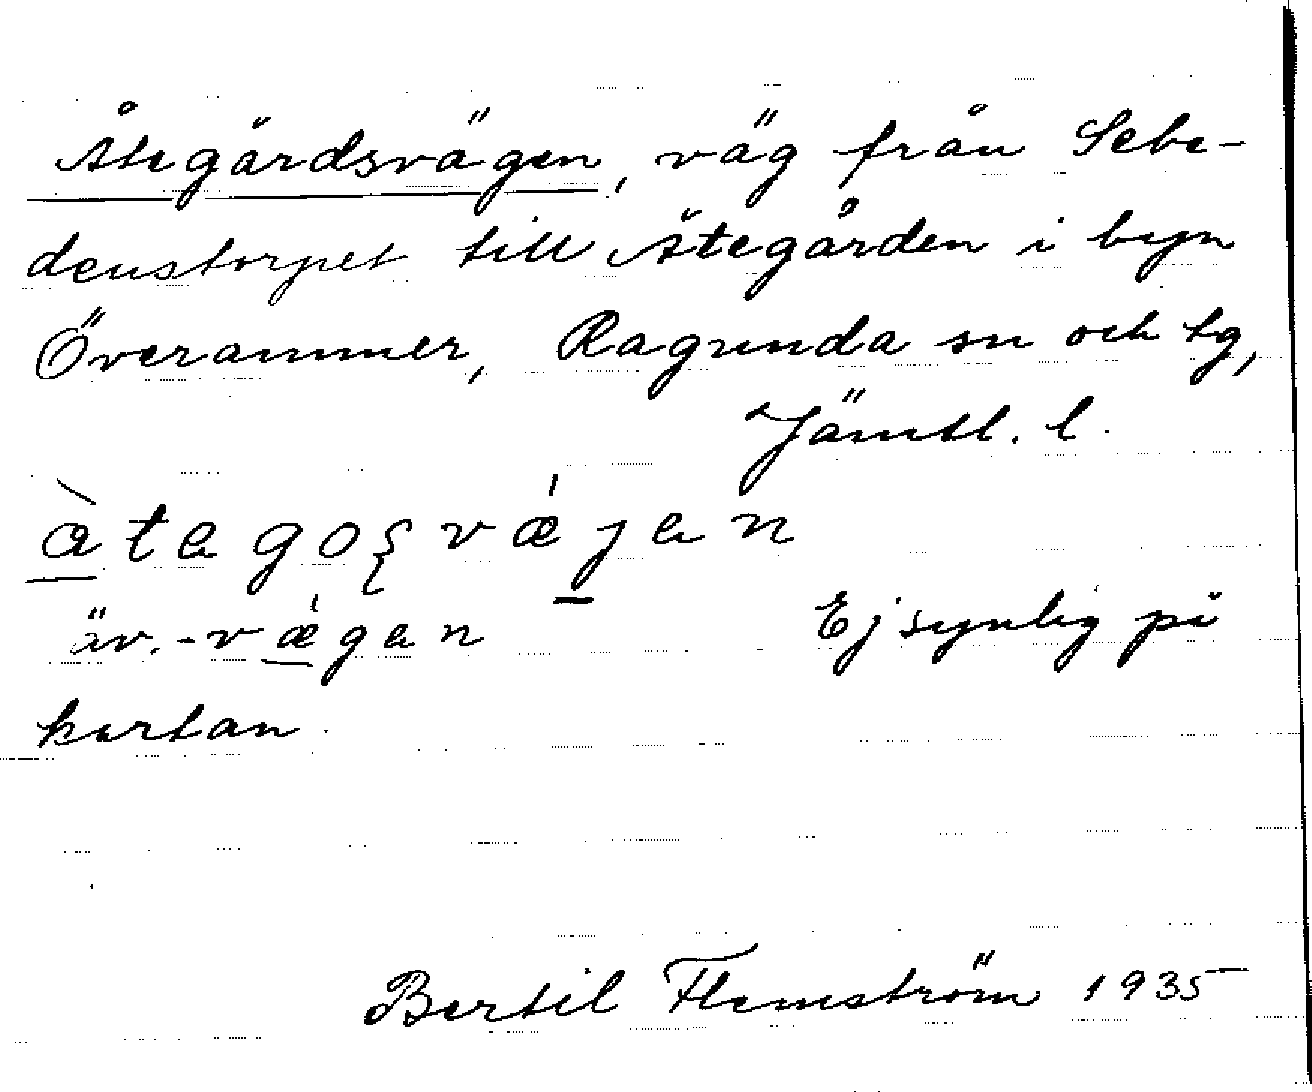 Åtegårdsvägen, väg från Sebe-
denstorpet till Åtegården i byn
Överammer, Ragunda sn och tg,
Jämtl. l.
àtegoʂvǽjen
äv. -vǽgen Ej synlig på
kartan.
Bertil Flemström 1935